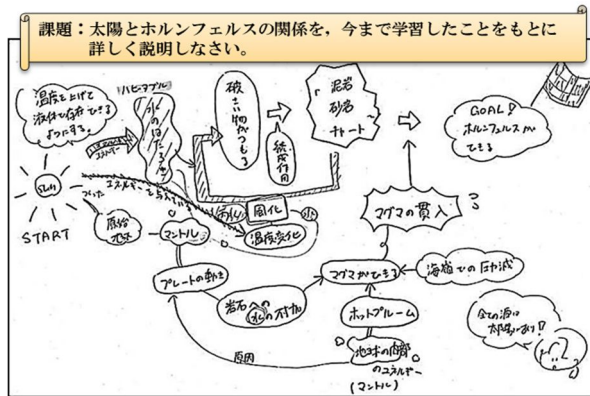 課題：太陽とホルンフェルスの関係を，今まで学習したことをもとに
詳しく説明しなさい。
温度を上げて
液体で存在できる
ようにする。
ハビタブル
水のはたらき
エネルギー
砕さい物がつもる
続成作用
泥岩
砂岩
チャート
GOAL!
ホルンフェルスが
できる
SUN
START
エネルギーを与えている
風化
水
温度変化
マグマの貫入
原始
地球
マントル
プレートの動き
岩石への
水の付加
マグマができる
海嶺での圧力減
ホットプルーム
原因
地球の内部
のエネルギー
(マントル)
全ての源は
太陽にあり!